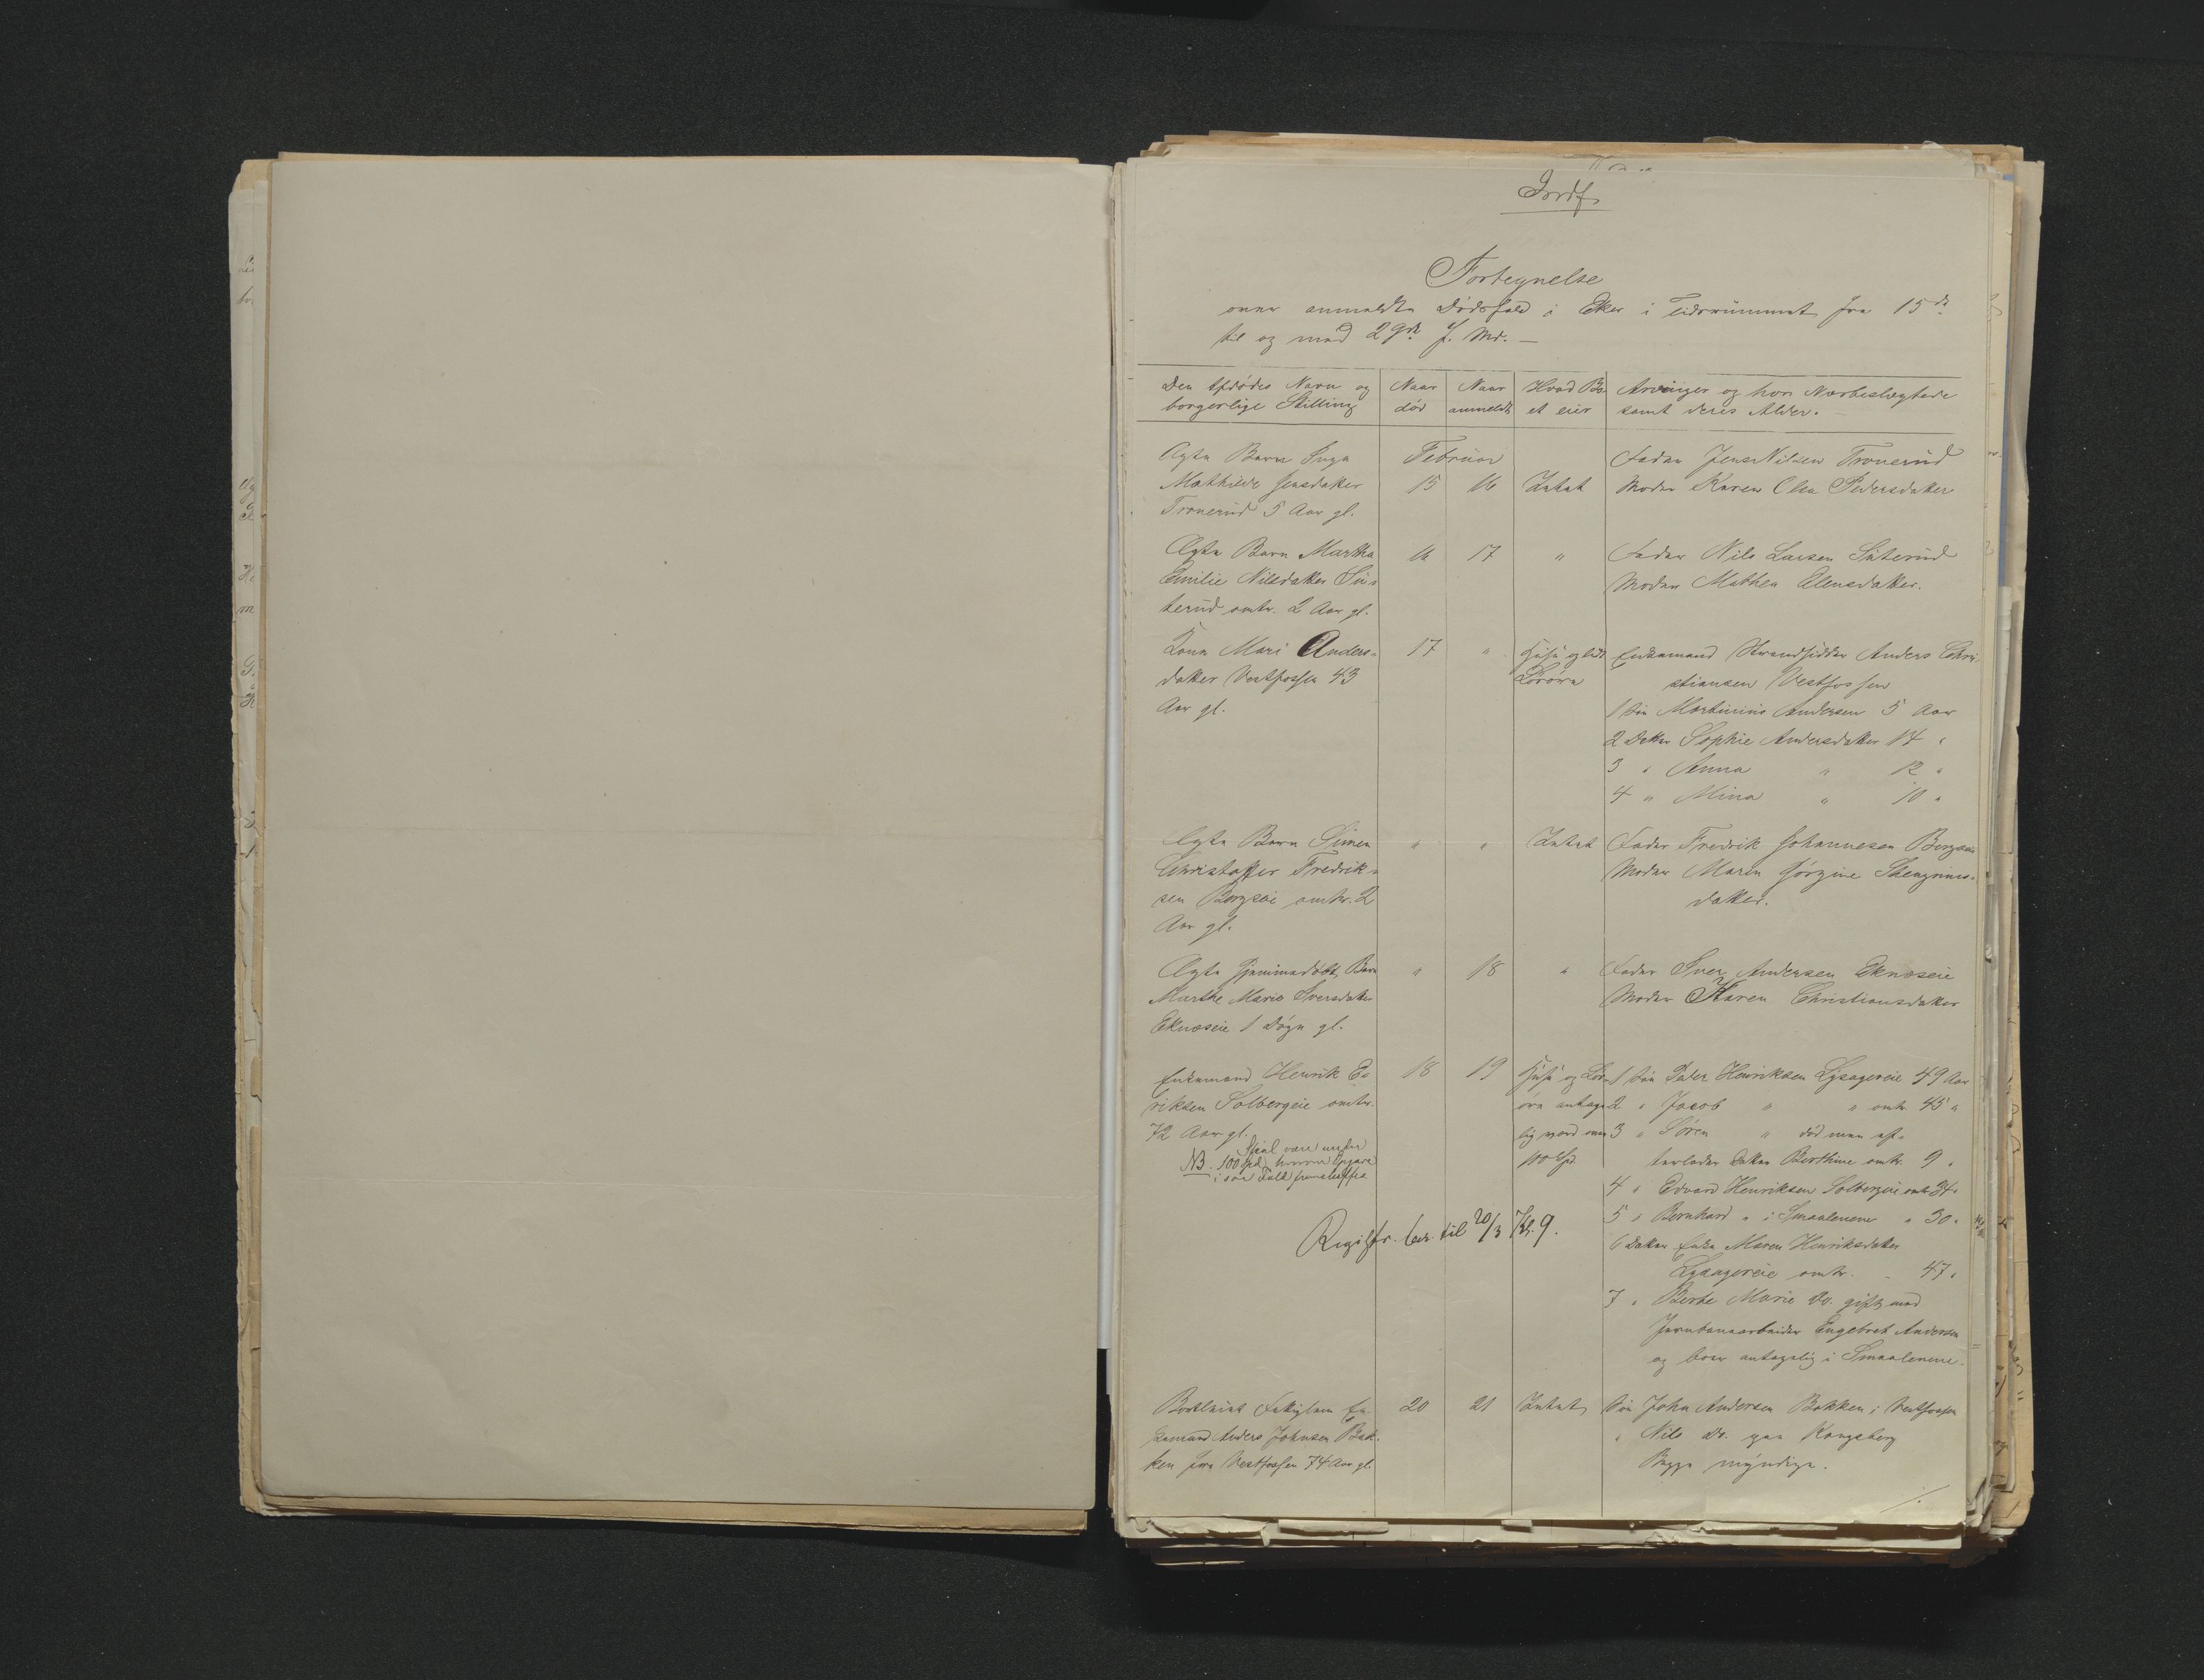 Indf.
Fortegnelse
over anmeldte Dødsfald i Eker i Tidsrummet fra 15de
til og med 29de f. Md. —
Den Afdødes Navn og borgerlige Stilling
Naar død
Naar anmeldt
Hvad Boet eier
Arvinger og hvor Nærbeslægtede samt deres Alder.
Ægte Barn Inga
Mathilde Jensdatter
Tronerud 5 Aar gl.
Februar
15 16 Intet
Fader Jens Nilsen Tronerud
Moder Karen Olea Pedersdatter
Ægte Barn Martha
Emilie Nilsdatter Sü-
terud omtr. 2 Aar gl.
16 17 "
Fader Nils Larsen Süterud
Moder Mathea Olensdatter.
Kone Mari Anders-
datter Vestfossen 43
Aar gl.
17 "
Huse og lidt
Løsøre
Enkemand Strandsidder Anders Chri-
stiansen Vestfossen
1 Søn Martinius Andersen 5 Aar
2 Datter Sophie Andersdatter 14 "
3 " Anna " 12 "
4 " Mina " 10 "
Ægte Barn Simen
Christoffer Fredrik-
sen Borgseie omtr. 2
Aar gl.
" " Intet
Fader Fredrik Johannesen Borgseie
Moder Maren Jørgine
datter.
Ægte hjemmedøbt Barn
Marthe Marie Iversdatter
Eknæseie 1 Døgn gl.
" 18 "
Fader Iver Andersen Eknæseie
Moder Karen Christiansdatter
Enkemand Henrik E-
riksen Solbergeie omtr.
72 Aar gl.
NB. Skal være under
100 Spd.
i saa Fald
18 19
Huse og Løs-
øre antage-
lig værd over
100 Spd.
1 Søn Peder Henriksen Lysagereie 49 Aar
2 " Jacob " " omtr. 45 "
3 " Søren " død men ef-
terlader Datter Berthine omtr. 9 "
4 " Edvard Henriksen Solbergeie omtr 34 "
5 " Bernhard " i Smaalenene " 30 "
6 Datter Enke Maren Henriksdatter
Lysagereie omtr. 47 "
7 " Berte Marie Do. gift med
Jernbanearbeider Engebret Andersen
og boer antagelig i Smaalenene.
Registr. ber. til 20/3 Kl. 9.
Bortleiet Fattiglem En-
kemand Anders Johnsen Bak-
ken fra Vestfossen 74 Aar gl.
20 21 Intet
Søn John Andersen Bakken i Vestfossen
" Nils Do. paa Kongsberg
Begge myndige.